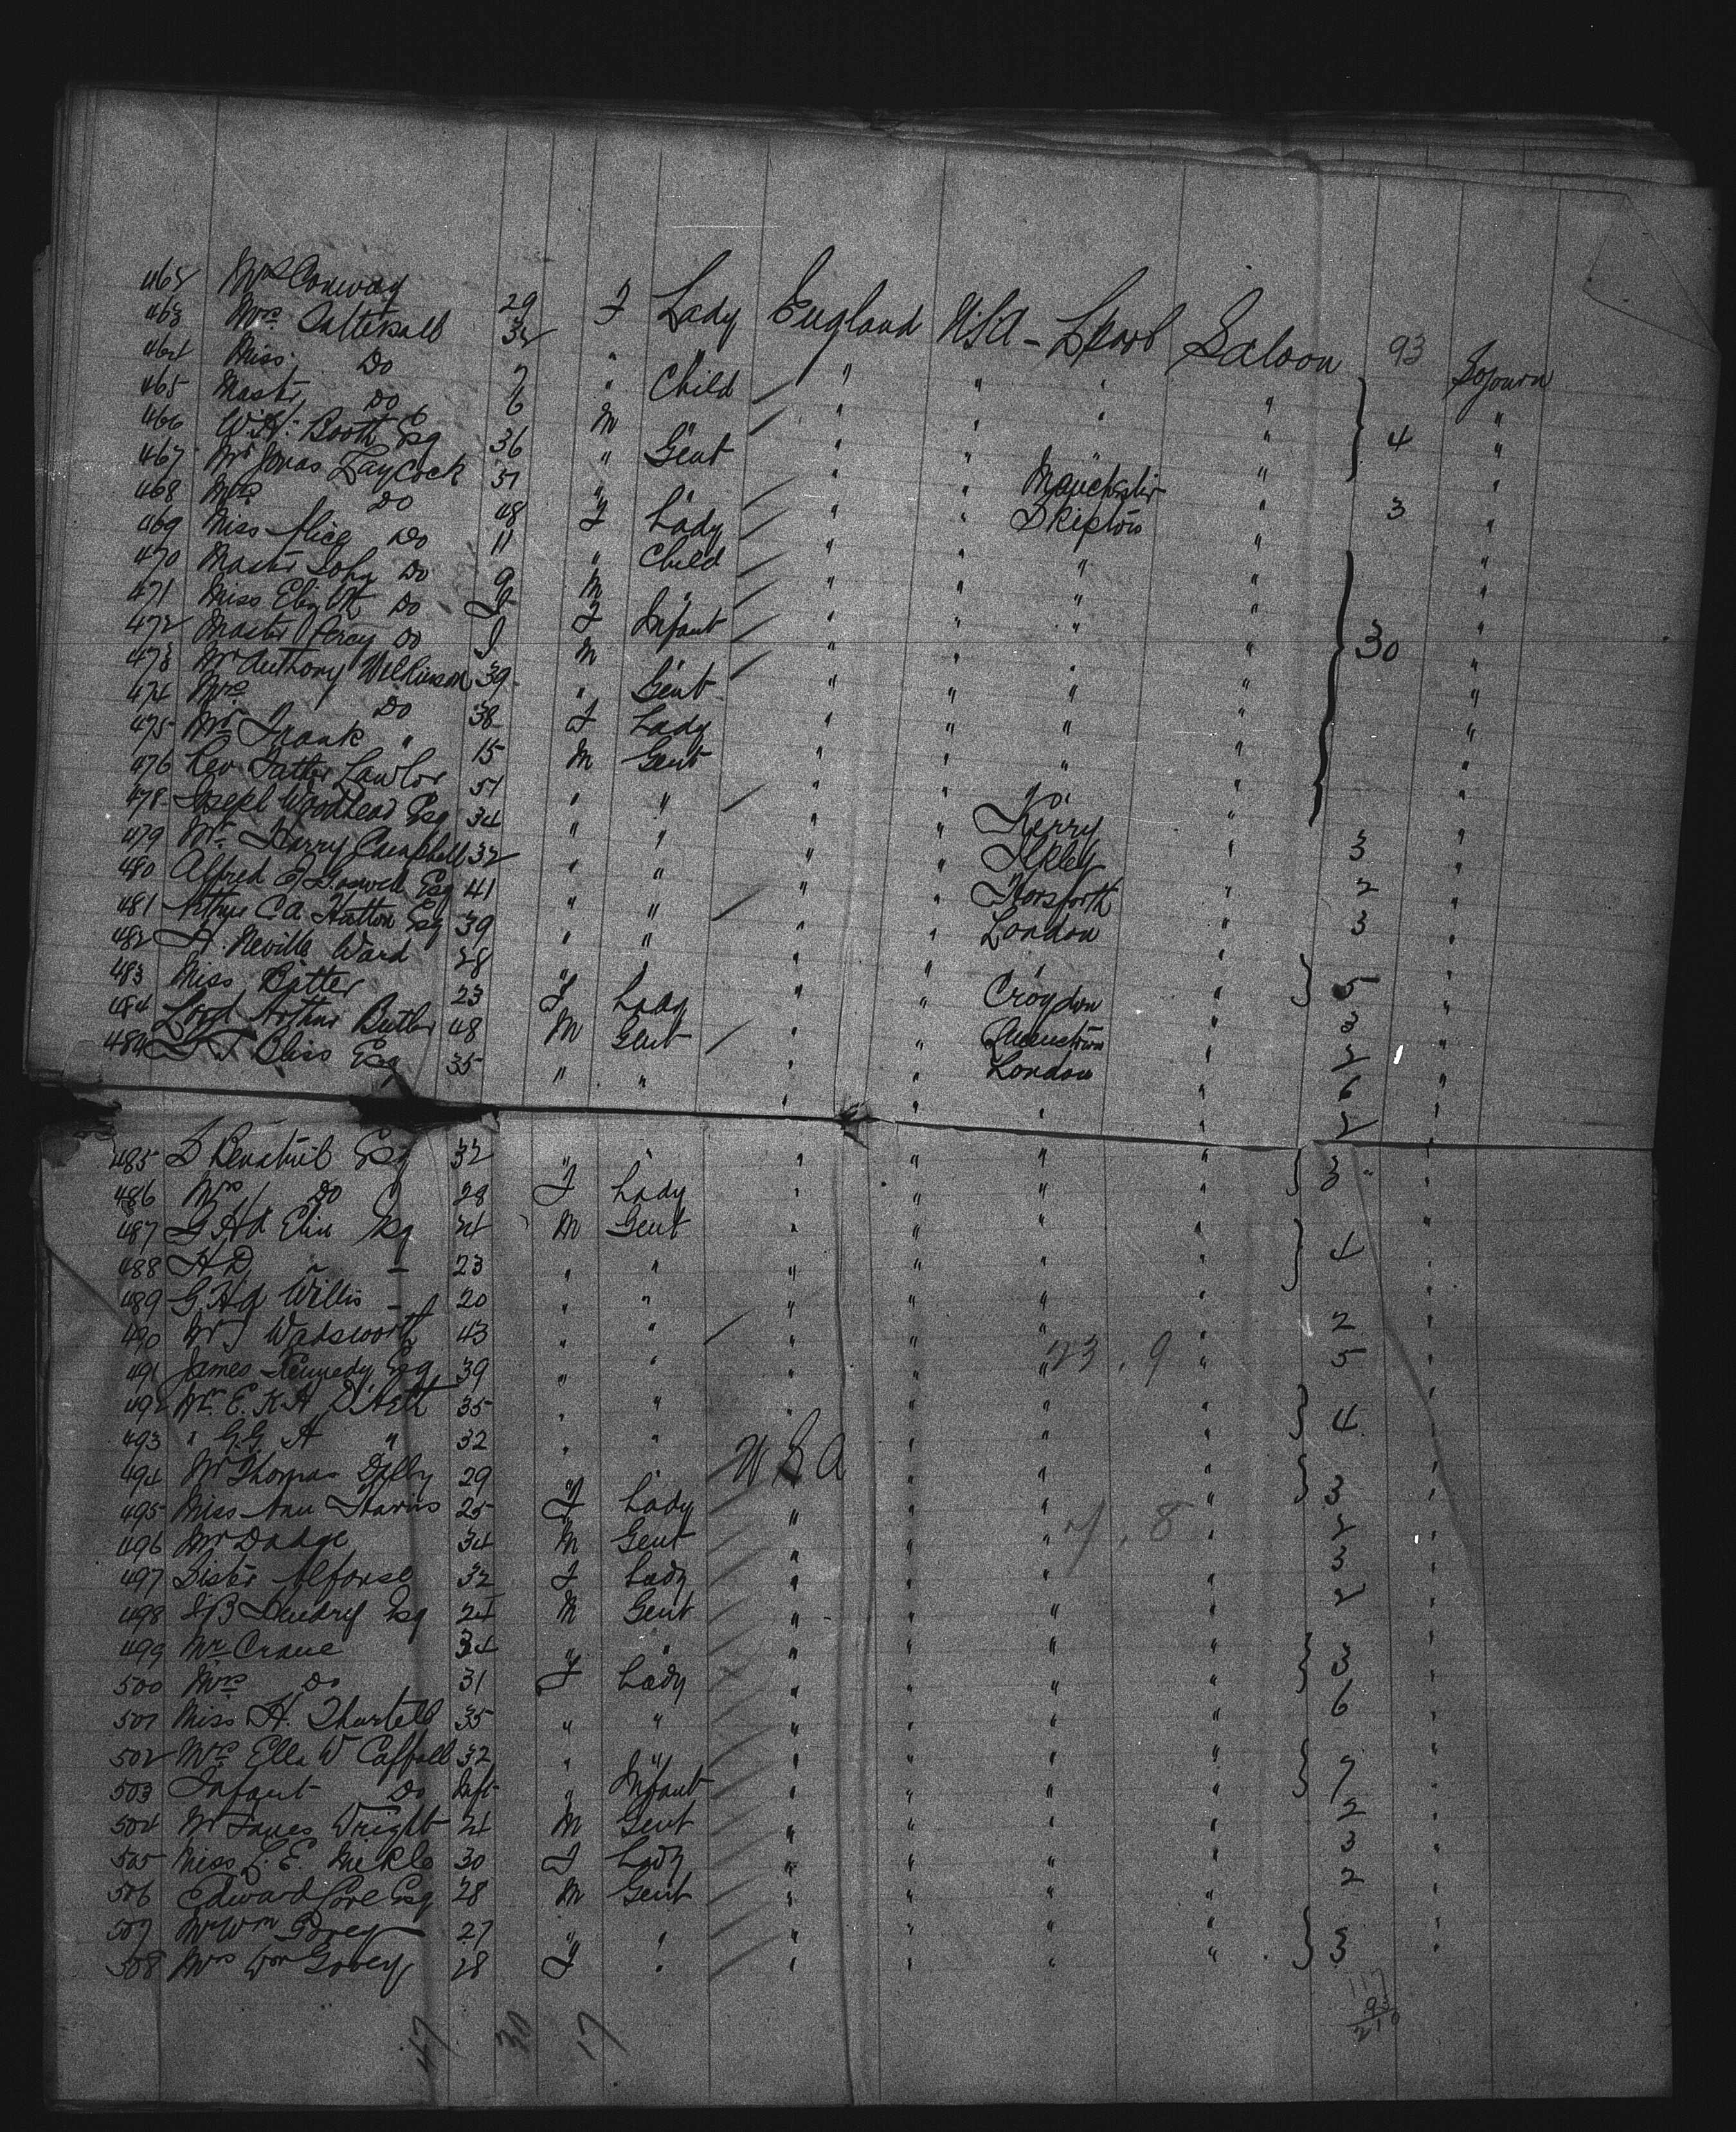 462 Mrs Conway 29 F Lady England USA - L'pool Saloon 93 Sojourn
463 Mrs Tattersall 32 " " " " " " "
464 Miss Do 7 " Child " " " " "
465 Master Do 6 M " " " " " 4 "
466 W.H. Booth Esq 36 " Gent " " Manchester " 3 "
467 Mr Jonas Laycock 51 " " " " Skipton " "
468 Mrs Do 48 F Lady " " " " "
469 Miss Alice Do 11 " Child " " " " "
470 Master John Do 9 M " " " " " "
471 Miss Elizbth Do I F Infant " " " " 30 "
472 Master Percy Do I M " " " " " "
473 Mr Anthony Wilkinson 39 " Gent " " " " "
474 Mrs Do 38 F Lady " " " " "
475 Mr Frank " 15 M Gent " " " " "
476 Rev Father Lawlor 51 " " " " Kerry " 3 "
478 Joseph Woodhead Esq 34 " " " " Ilkley " 2 "
479 Mr Harry Campbell 32 " " " " Horsforth " 3 "
480 Alfred Esq 41 " " " " London " "
481 Arthur C.A. Hatton Esq 39 " " " " " " 5 "
482 H. Neville Ward 28 " " " " Croydon " 3 "
483 Miss Batter 23 F Lady " " Queenstown " 2 "
484 Lord Arthur Butler 48 M Gent " " London " 6 "
484 Bliss Esq 35 " " " " " " 2 "
485 Esq 32 " " " " " " 3 "
486 Mrs Do 28 F Lady " " " " "
487 Esq 24 M Gent " " " " 4 "
488 H D " - 23 " " " " " " "
489 Willis - 20 " " " " " " 2 "
490 Mr J Wadsworth 43 " " " " " " 5 "
491 James Kennedy Esq 39 " " " " 23 . 9 " "
492 Mr. E. K. H 35 " " " " " " 4 "
493 " G.G. H " 32 " " " " " " "
494 Mr Thomas Dolby 29 " " U S A " " " 3 "
495 Miss Ann Harris 25 F Lady " " " " 2 "
496 Mr Dodge 34 M Gent " " 7 . 8 " 3 "
497 Sister Alfonse 32 F Lady " " " " 2 "
498 Esq 24 M Gent " " " " "
499 Mr Crane 34 " " " " " " 3 "
500 Mrs Do 31 F Lady " " " " "
501 Miss H. Thurtell 35 " " " " " " 6 "
502 Mrs Ella W Caffall 32 " " " " " " 7 "
503 Infant Do Inft " Infant " " " " "
504 Mr James Wright 24 M Gent " " " " 2 "
505 Miss L. E. Mickle 30 F Lady " " " " 3 "
506 Edward Esq 28 M Gent " " " " 2 "
507 Mr Wm Govey 27 " " " " " " 3 "
508 Mrs Wm Govey 28 F " " " " "
117
93
210
47 30 17